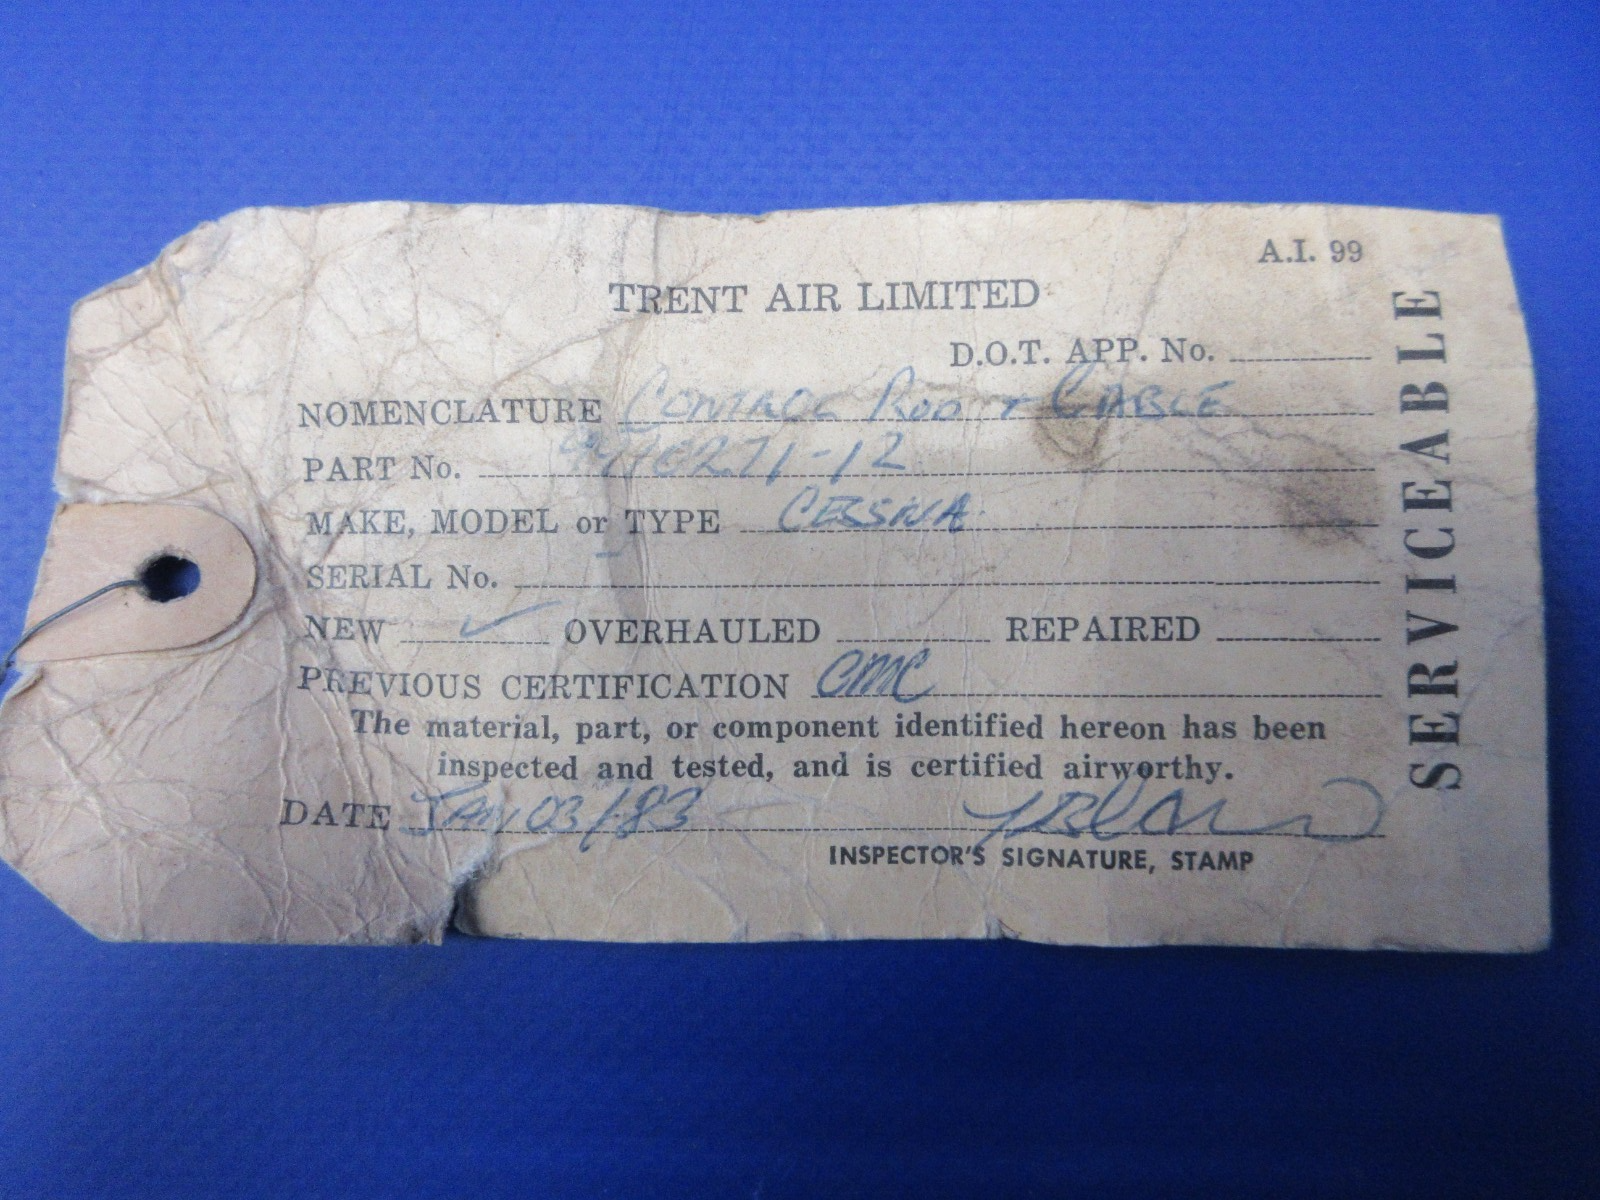 A.I. 99
TRENT AIR LIMITED
D.O.T. APP. No.
NOMENCLATURE CONTROL ROD + CABLE
PART No.
MAKE, MODEL or TYPE CESSNA
SERIAL No.
NEW ✓ OVERHAULED REPAIRED
PREVIOUS CERTIFICATION CMC
The material, part, or component identified hereon has been
inspected and tested, and is certified airworthy.
DATE JAN 03/83
INSPECTOR'S SIGNATURE, STAMP
SERVICEABLE